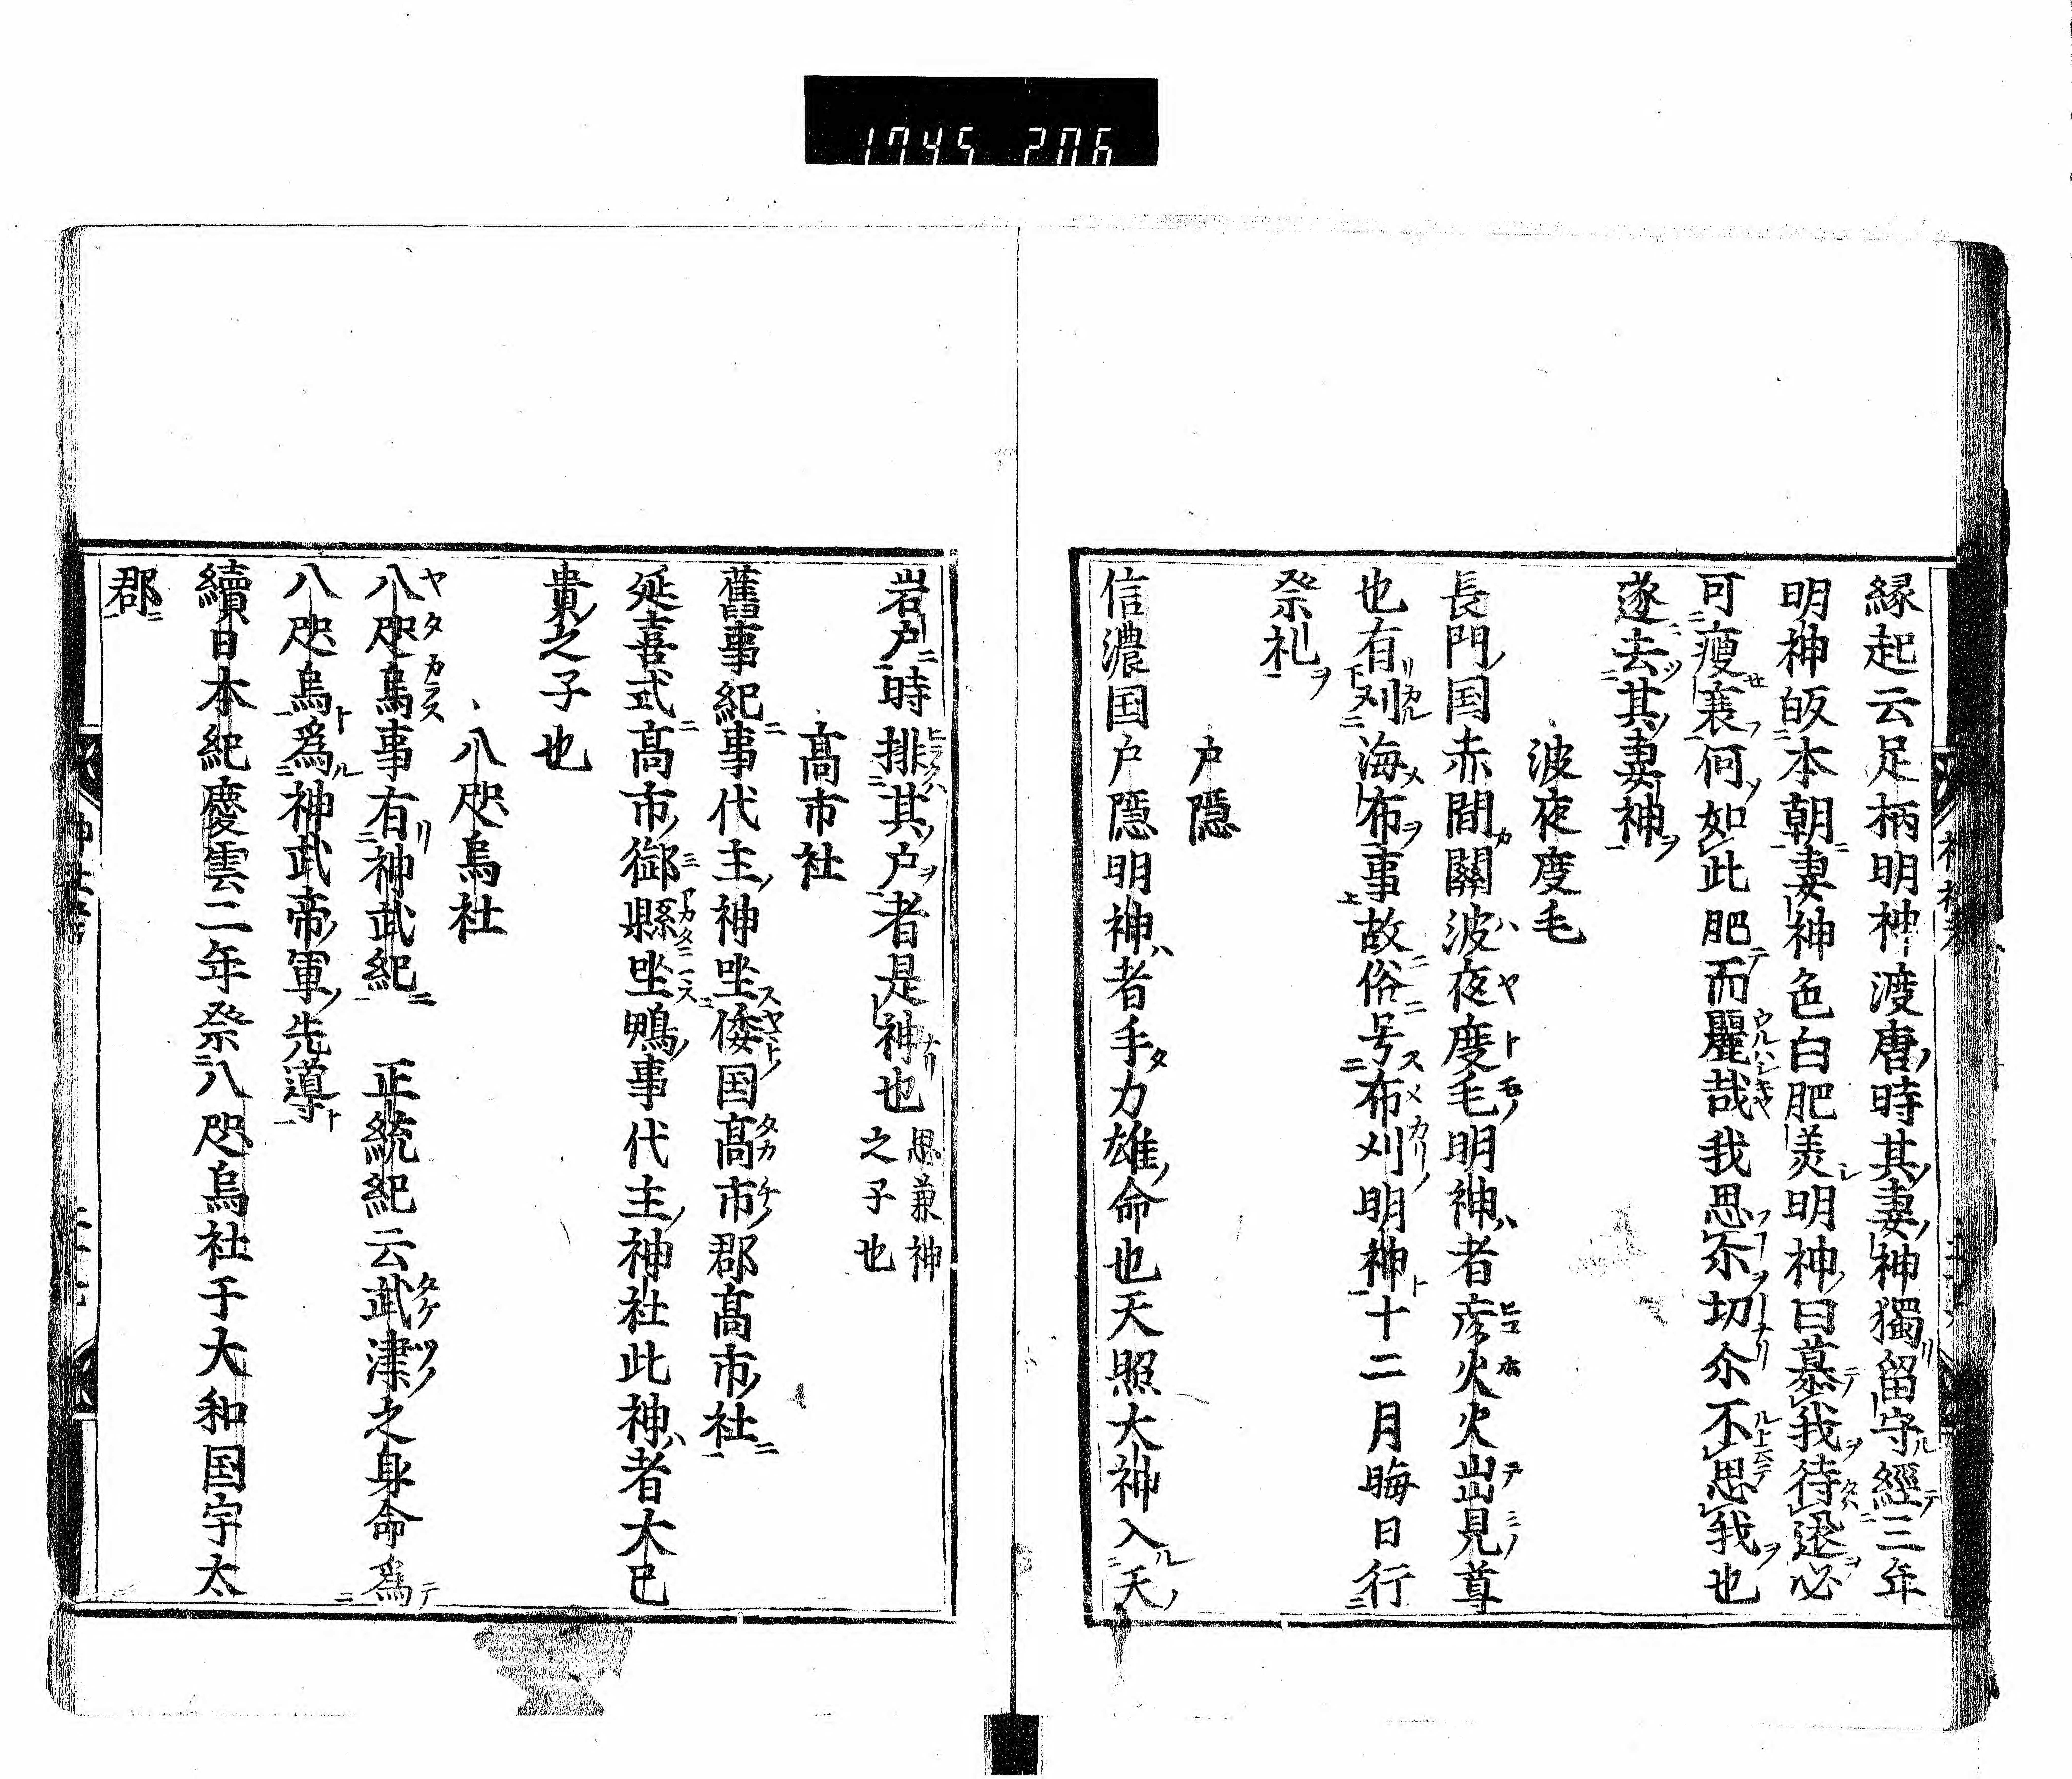 1745 206
縁起云足柄明神渡唐時其妻神獨留守經三年
明神皈本朝妻神色白肥美明神曰慕我待迯必
可瘦衰何如此肥而麗哉我思尒切尒不思我也
遂去其妻神
波夜度毛
長門国赤間關波夜度毛明神者彦火火出見尊
也有刈海布事故俗号布刈明神十二月晦日行
祭礼
户隠
信濃国户隠明神者手力雄命也天照大神入天
岩户時排其户者是神也
思兼神
之子也
髙市社
舊事紀事代主神坐倭国髙市郡髙市社
延喜式髙市御縣坐鴨事代主神社此神者大已
貴之子也
八咫烏社
八咫烏事有神武紀 正統紀云武津之身命爲
八咫烏爲神武帝軍先導
續日本紀慶雲二年祭八咫烏社于大和国宇太
郡